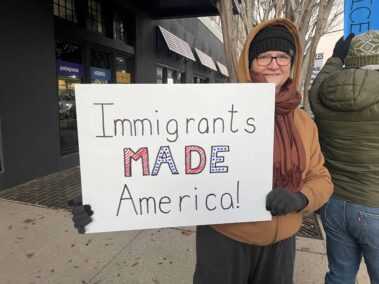 Immigrants
MADE
America!
patagonia